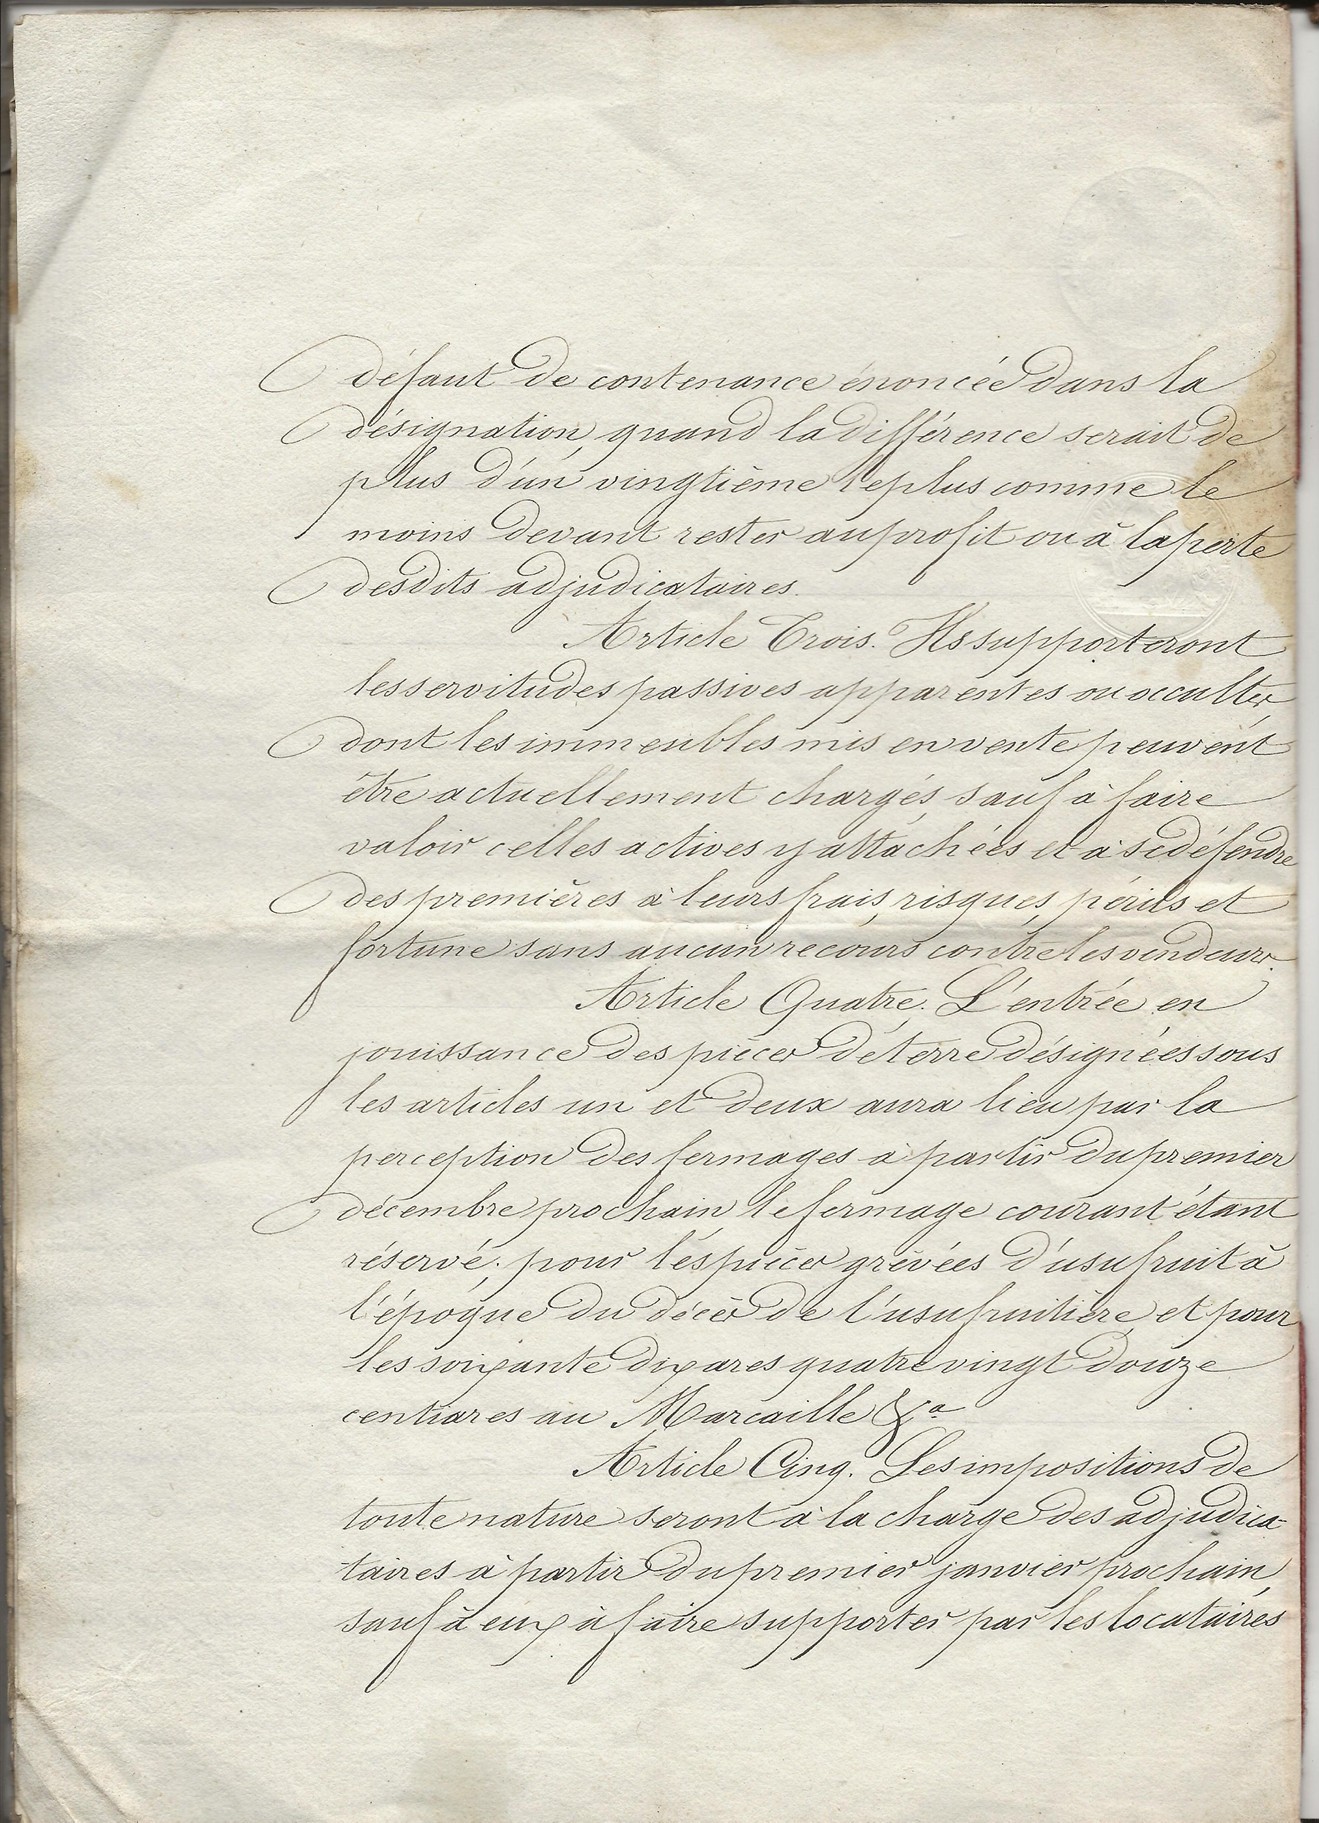 défaut de contenance énoncée dans la
désignation, quand la différence serait de
plus d'un vingtième le plus comme le
moins devant rester au profit ou à la perte
desdits adjudicataires.
Article Trois. Ils supporteront
les servitudes passives apparentes ou occultes
dont les immeubles mis en vente peuvent
être actuellement chargés, sauf à faire
valoir celles actives y attachées et à se défendre
des premières à leurs frais, risques, périls et
fortune sans aucun recours contre les vendeurs.
Article Quatre. L'entrée en
jouissance des pièces de terre désignées sous
les articles un et deux aura lieu par la
perception des fermages à partir du premier
décembre prochain, le fermage courant étant
réservé; pour les pièces grèvées d'usufruit à
l'époque du décès de l'usufruitière, et pour
les soixante dix ares quatre vingt douze
centiares au Marcaille &a
Article Cinq. Les impositions de
toute nature seront à la charge des adjudica-
taires à partir du premier janvier prochain,
sauf à eux à faire supporter par les locataires